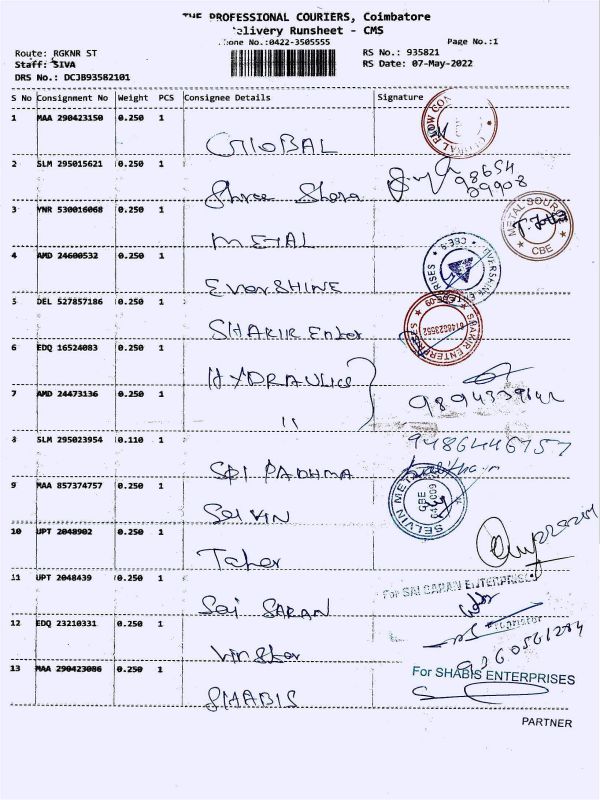 THE PROFESSIONAL COURIERS, Coimbatore
Delivery Runsheet - CMS
Phone No.:0422-3505555
Page No.:1
Route: RGKNR ST
RS No.: 935821
Staff: SIVA
RS Date: 07-May-2022
DRS No.: DCJB93582101
S No Consignment No Weight PCS Consignee Details Signature
1 MAA 290423150 0.250 1
GLOBAL
2 SLM 295015621 0.250 1
Shree Shera
98654
09908
3 YNR 530016068 0.250 1
METAL
METAL SOURCE
CBE
4 AMD 24600532 0.250 1
EverSHINE
EVERSHINE ENTERPRISES
CBE-9
5 DEL 527857186 0.250 1
SHAKIR Enter
SHAKIR ENTERPRISES
6 EDQ 16524083 0.250 1
HYDRAULICS
7 AMD 24473136 0.250 1
"
9894339642
8 SLM 295023954 0.110 1
SRI PADHMA
9486446757
9 MAA 857374757 0.250 1
SELVIN
SELVIN METAL
CBE
641 009
10 UPT 2048902 0.250 1
Taher
11 UPT 2048439 0.250 1
Sai SARAN
For SAI SARAN ENTERPRISES
Proprietor
12 EDQ 23210331 0.250 1
Vinstar
9360561284
13 MAA 290423086 0.250 1
SHABIS
For SHABIS ENTERPRISES
PARTNER